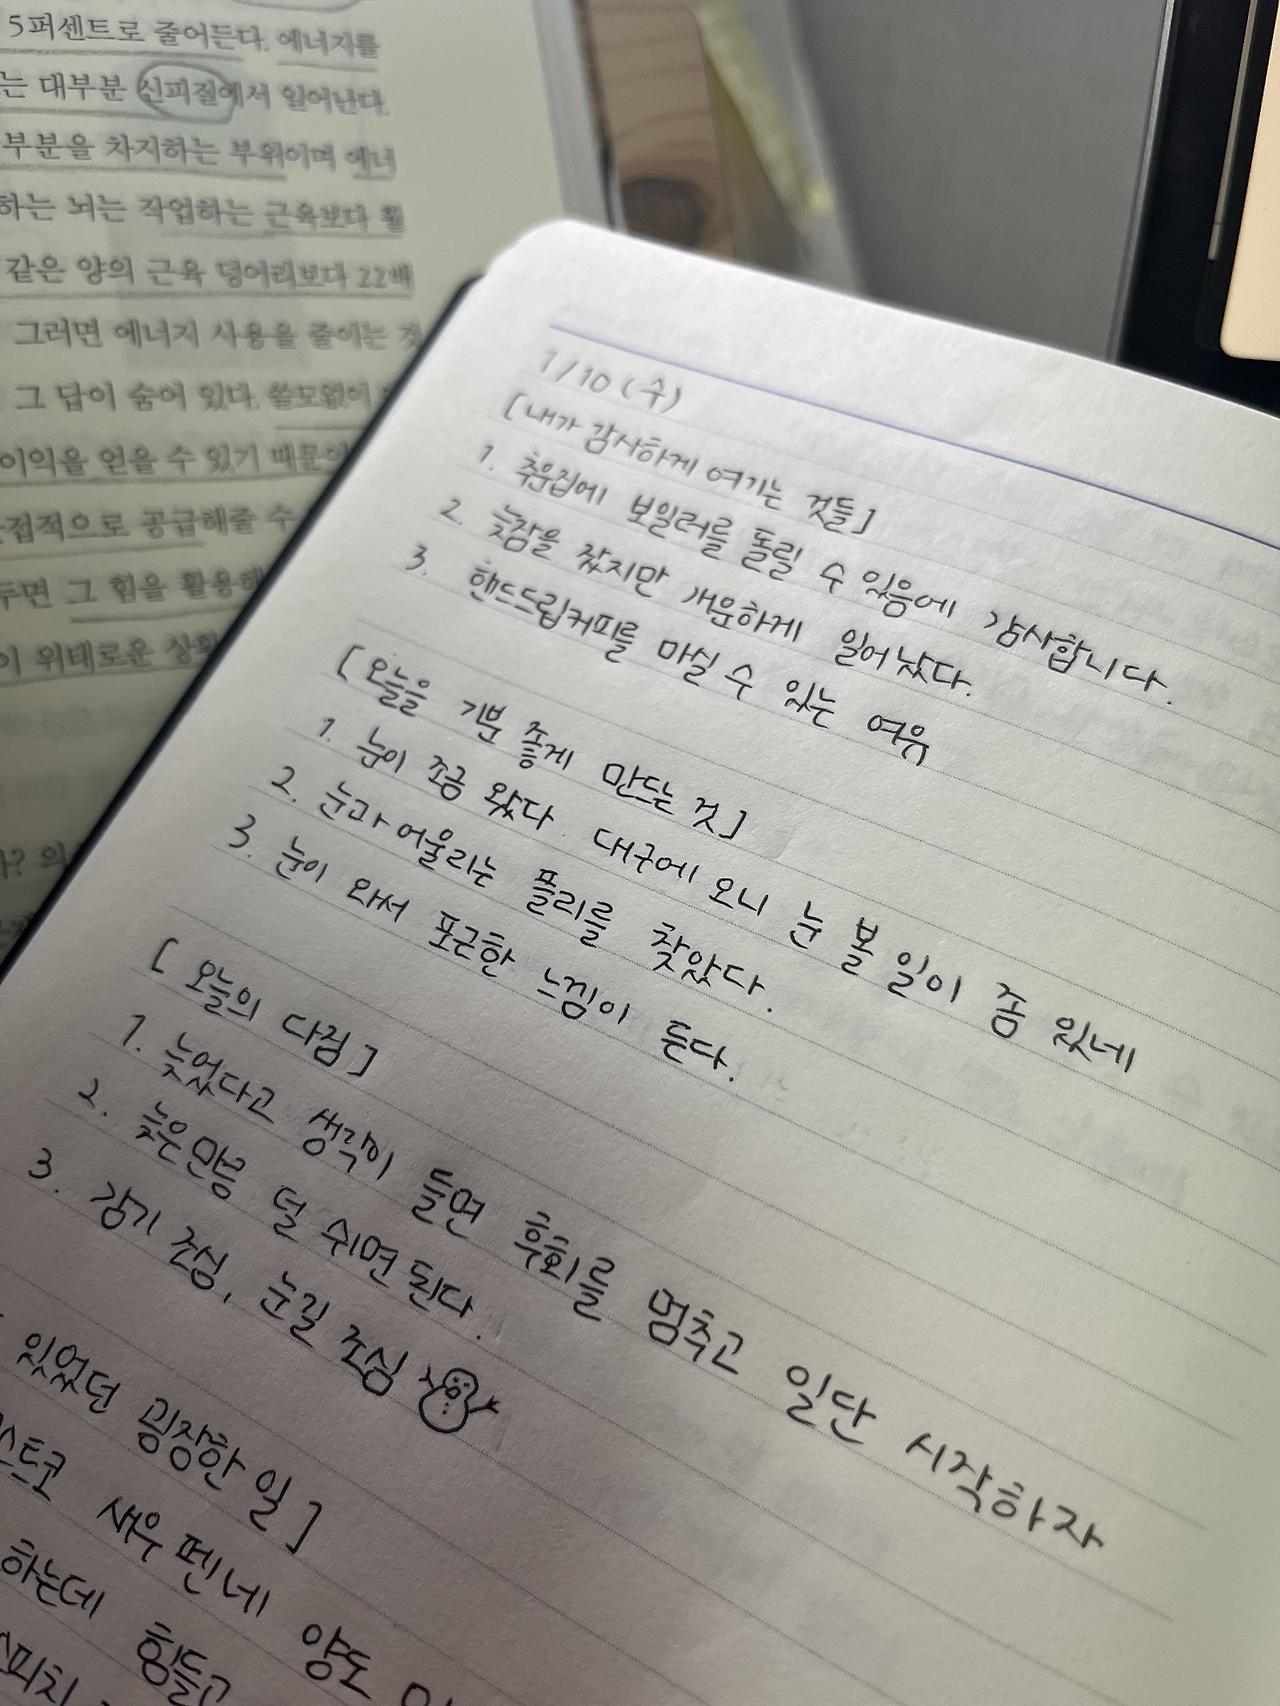 5퍼센트로 줄어든다. 에너지를
는 대부분 신피질에서 일어난다.
부분을 차지하는 부위이며 에너
하는 뇌는 작업하는 근육보다 훨
같은 양의 근육 덩어리보다 22배
그러면 에너지 사용을 줄이는 것
그 답이 숨어 있다. 쓸모없이
이익을 얻을 수 있기 때문이
접적으로 공급해줄 수
두면 그 힘을 활용해
이 위태로운 상황
1/10 (수)
[내가 감사하게 여기는 것들]
1. 추운집에 보일러를 돌릴 수 있음에 감사합니다.
2. 늦잠을 잤지만 개운하게 일어났다.
3. 핸드드립커피를 마실 수 있는 여유
[오늘을 기분 좋게 만드는 것]
1. 눈이 조금 왔다. 대구에 오니 눈 볼 일이 좀 있네
2. 눈과 어울리는 플리를 찾았다.
3. 눈이 와서 포근한 느낌이 든다.
[오늘의 다짐]
1. 늦었다고 생각이 들면 후회를 멈추고 일단 시작하자
2. 늦은만큼 덜 쉬면 된다.
3. 감기 조심, 눈길 조심
있었던 굉장한 일]
스트코 새우 펜네 양도
하는데 힘들고